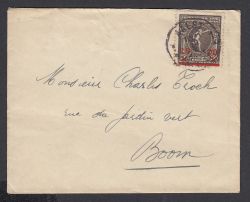 Monsieur Charles Crock
rue du Jardin vert
Boom